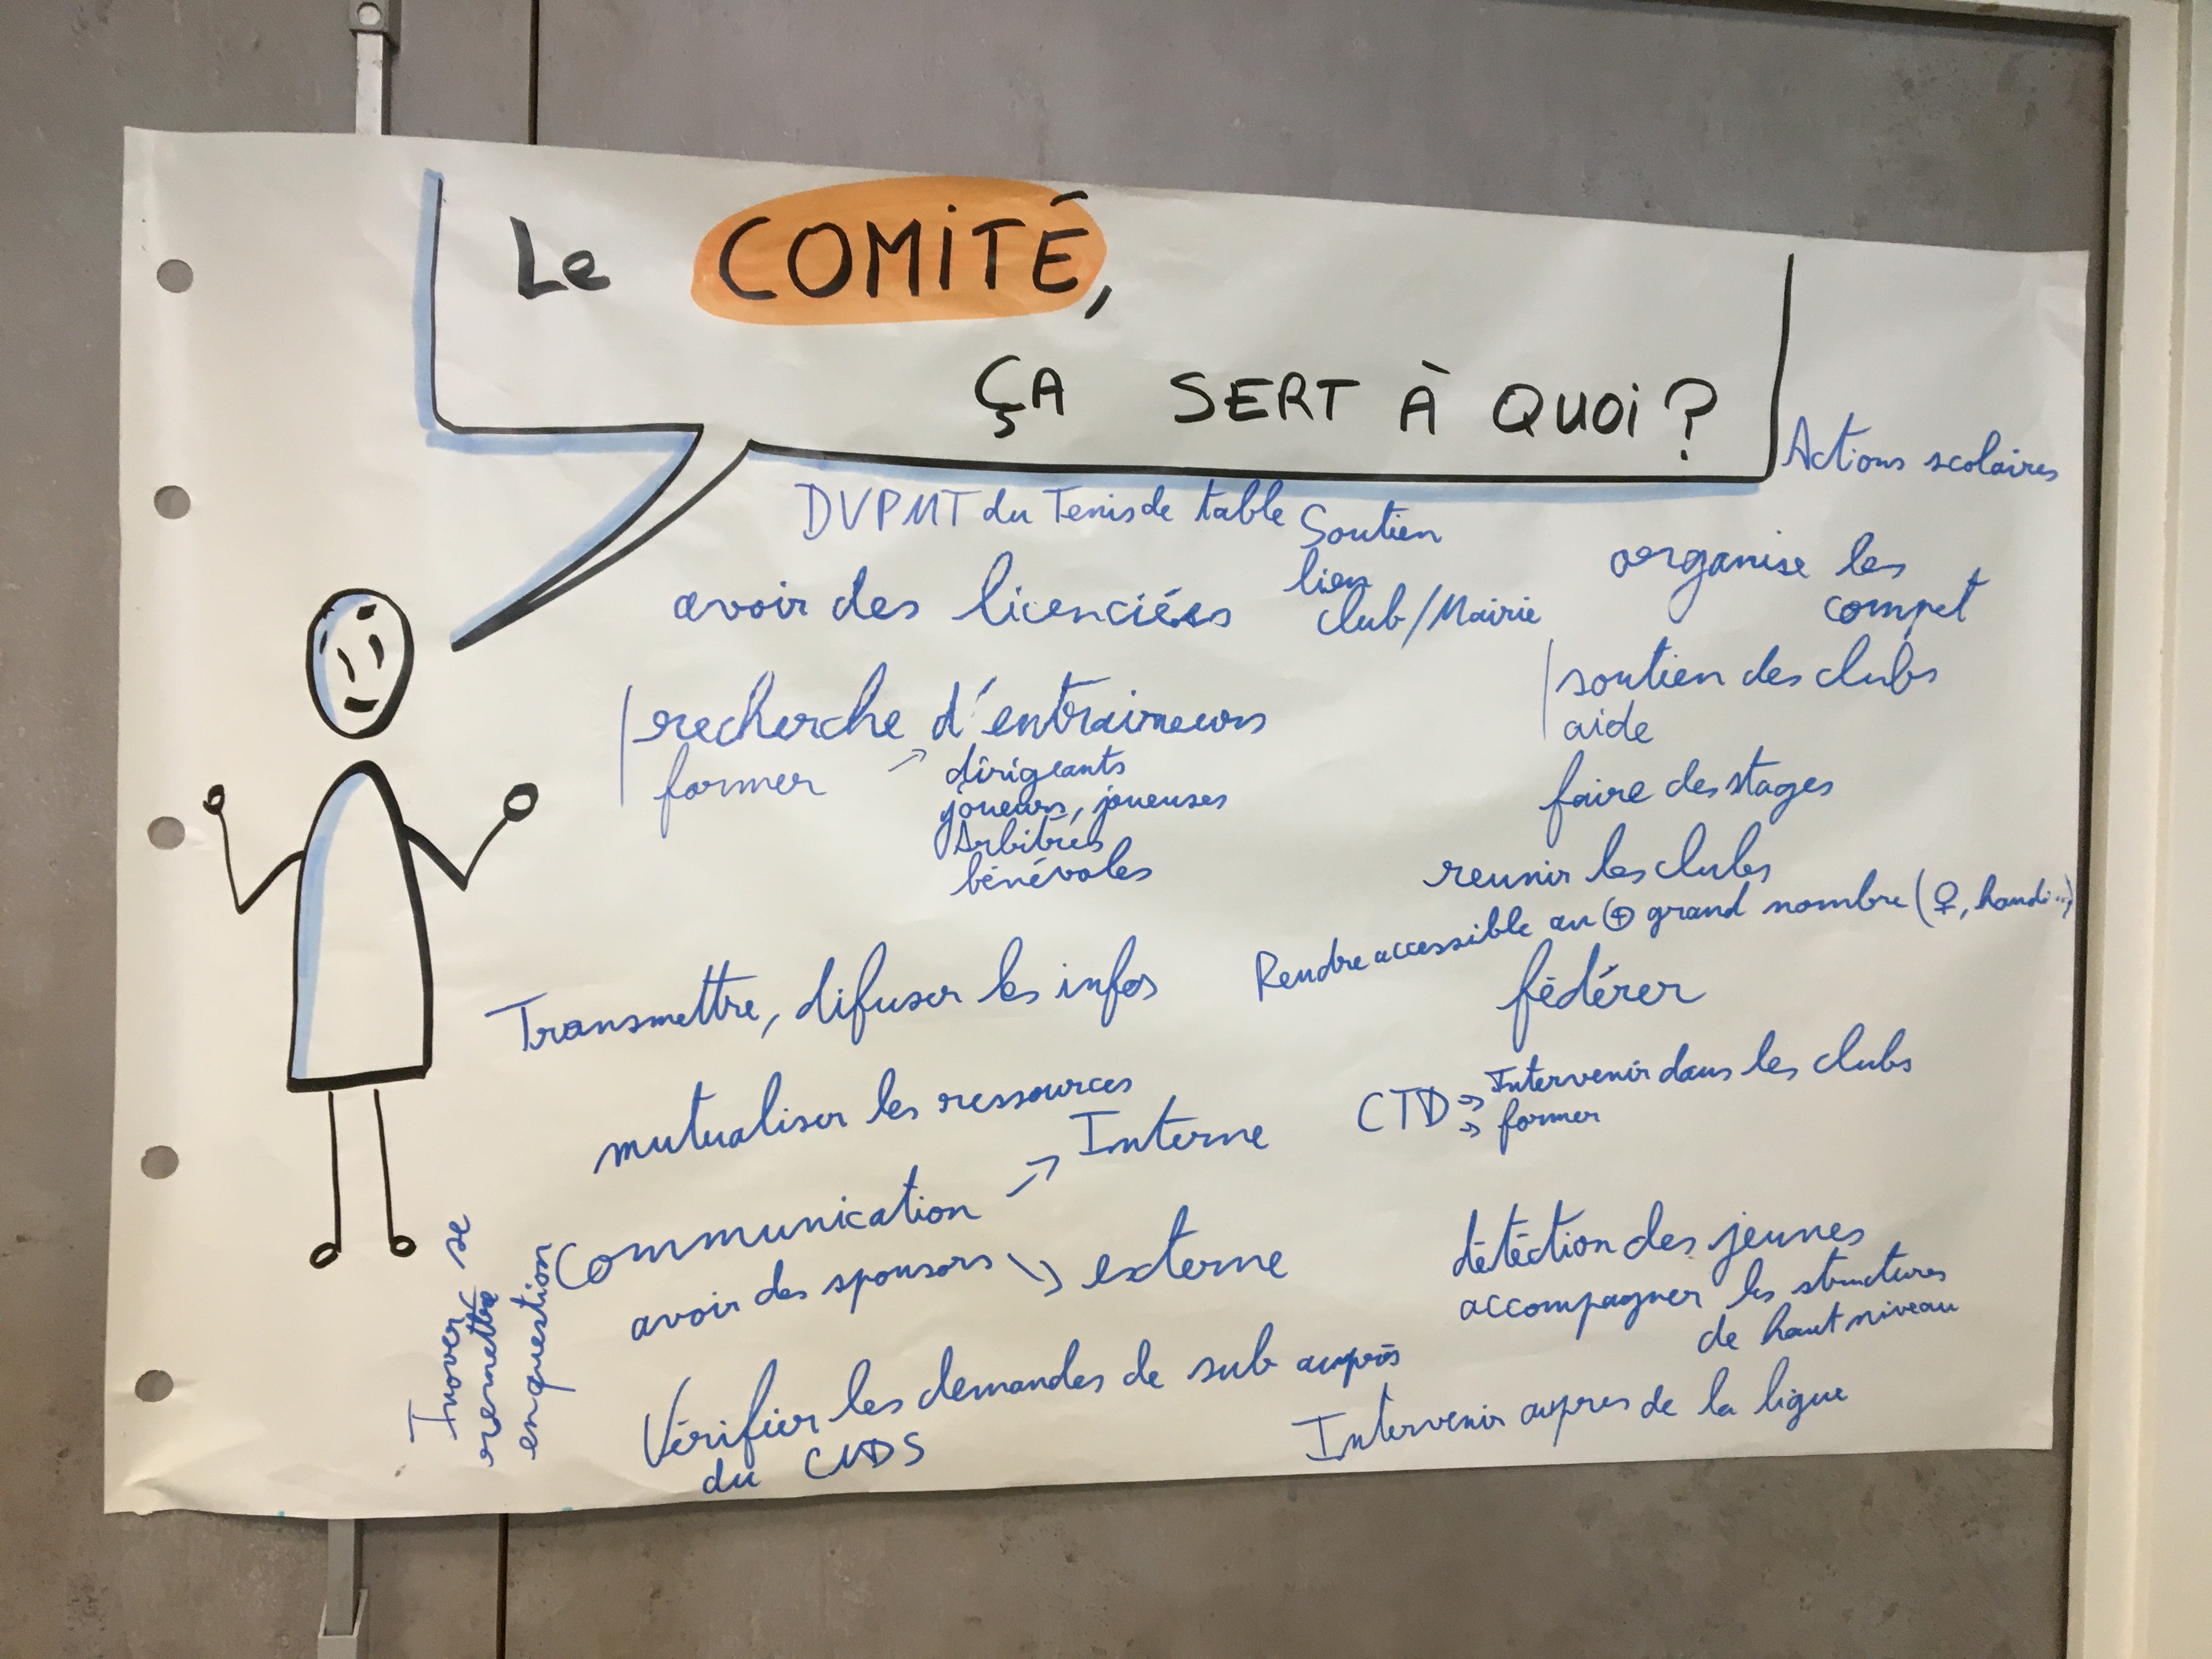 Le COMITÉ,
ÇA SERT À QUOI ?
Actions scolaires
DVPMT du Tenis de table
Soutien
lien
club/Mairie
organise les
compet
avoir des licenciés
soutien des clubs
aide
recherche d'entraineurs
former → dirigeants
joueurs, joueuses
Arbitres
bénévoles
faire des stages
reunir les clubs
Rendre accessible au + grand nombre (♀, handi...)
fédérer
Transmettre, difuser les infos
mutualiser les ressources
CTD → Intervenir dans les clubs
→ former
Communication → Interne
→ externe
avoir des sponsors
détéction des jeunes
accompagner les structures
de haut niveau
Vérifier les demandes de sub auprès
du CNDS
Intervenir aupres de la ligue
Inover se
remettre
en question